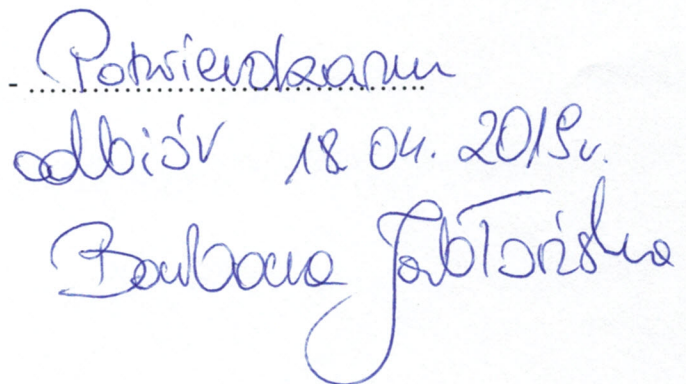 Potwierdzam
odbiór 18.04.2019r.
Barbara Jabłońska